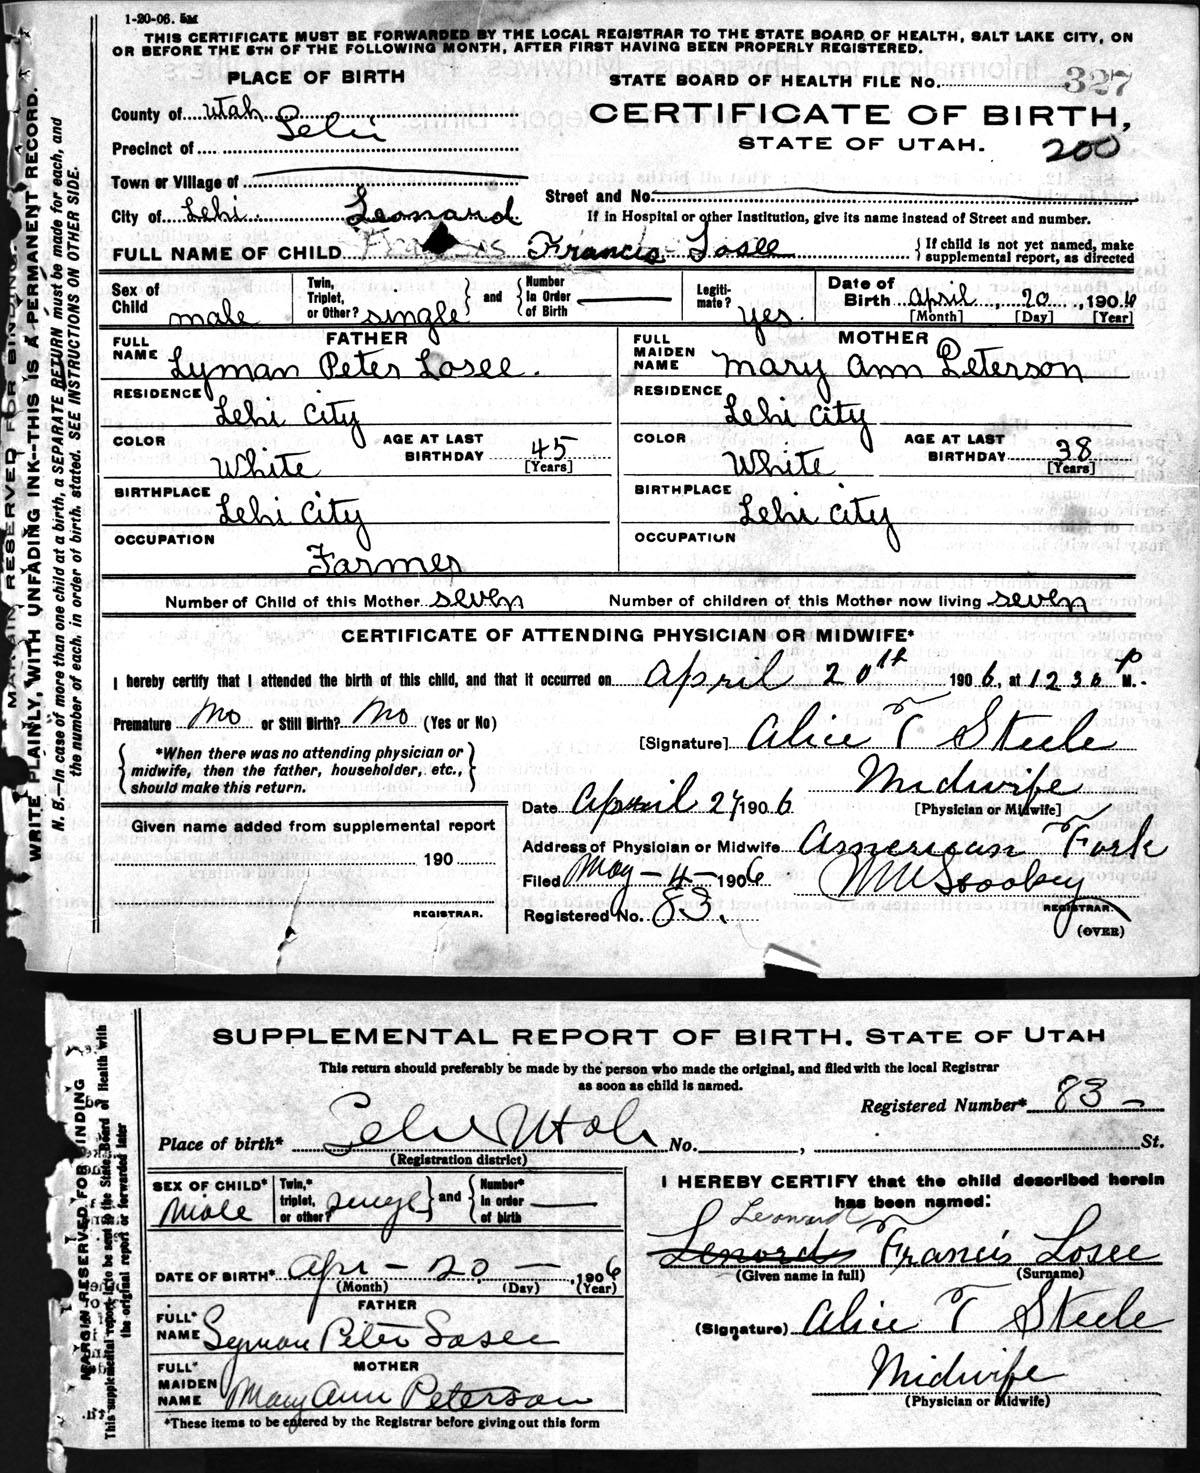 1-20-06. 5M
THIS CERTIFICATE MUST BE FORWARDED BY THE LOCAL REGISTRAR TO THE STATE BOARD OF HEALTH, SALT LAKE CITY, ON
OR BEFORE THE 5TH OF THE FOLLOWING MONTH, AFTER FIRST HAVING BEEN PROPERLY REGISTERED.
MARGIN RESERVED FOR BINDING
WRITE PLAINLY, WITH UNFADING INK—THIS IS A PERMANENT RECORD.
N. B.—In case of more than one child at a birth, a SEPARATE RETURN must be made for each, and
the number of each, in order of birth, stated. SEE INSTRUCTIONS ON OTHER SIDE.
PLACE OF BIRTH
STATE BOARD OF HEALTH FILE NO. 327
County of Utah
CERTIFICATE OF BIRTH,
Precinct of Lehi
STATE OF UTAH.
200
Town or Village of
Street and No.
City of Lehi
If in Hospital or other Institution, give its name instead of Street and number.
Leonard
FULL NAME OF CHILD Francis Francis Losee
{ If child is not yet named, make supplemental report, as directed
Sex of Child male
Twin, Triplet, or Other? single } and { Number In Order of Birth
Legitimate? yes.
Date of Birth April 20, 1906
[Month] [Day] [Year]
FATHER
MOTHER
FULL NAME Lyman Peter Losee.
FULL MAIDEN NAME Mary Ann Peterson
RESIDENCE Lehi City
RESIDENCE Lehi City
COLOR White AGE AT LAST BIRTHDAY 45 [Years]
COLOR White AGE AT LAST BIRTHDAY 38 [Years]
BIRTHPLACE Lehi City
BIRTHPLACE Lehi City
OCCUPATION Farmer
OCCUPATION
Number of Child of this Mother seven Number of children of this Mother now living seven
CERTIFICATE OF ATTENDING PHYSICIAN OR MIDWIFE*
I hereby certify that I attended the birth of this child, and that it occurred on April 20th 1906, at 1230 P M.
Premature No or Still Birth? No (Yes or No)
[Signature] Alice T Steele
{ *When there was no attending physician or
midwife, then the father, householder, etc.,
should make this return. }
Midwife
[Physician or Midwife]
Date April 24 1906
Given name added from supplemental report
190
REGISTRAR.
Address of Physician or Midwife American Fork
Filed May - 4 - 1906
REGISTRAR.
Registered No. 83.
(OVER)
SUPPLEMENTAL REPORT OF BIRTH. STATE OF UTAH
This return should preferably be made by the person who made the original, and filed with the local Registrar
as soon as child is named.
MARGIN RESERVED FOR BINDING
This supplemental report is to be sent to the State Board of Health with
the original report or forwarded later
Registered Number* 83 —
Place of birth* Lehi Utah No. , St.
(Registration district)
SEX OF CHILD* Male
Twin,* triplet, or other? single } and { Number* in order of birth
I HEREBY CERTIFY that the child described herein
has been named:
Leonard
Lenord Francis Losee
(Given name in full) (Surname)
DATE OF BIRTH* Apr - 20 — , 1906
(Month) (Day) (Year)
FATHER
FULL* NAME Lyman Peter Losee
(Signature) Alice T Steele
MOTHER
FULL* MAIDEN NAME Mary Ann Peterson
Midwife
(Physician or Midwife)
*These items to be entered by the Registrar before giving out this form